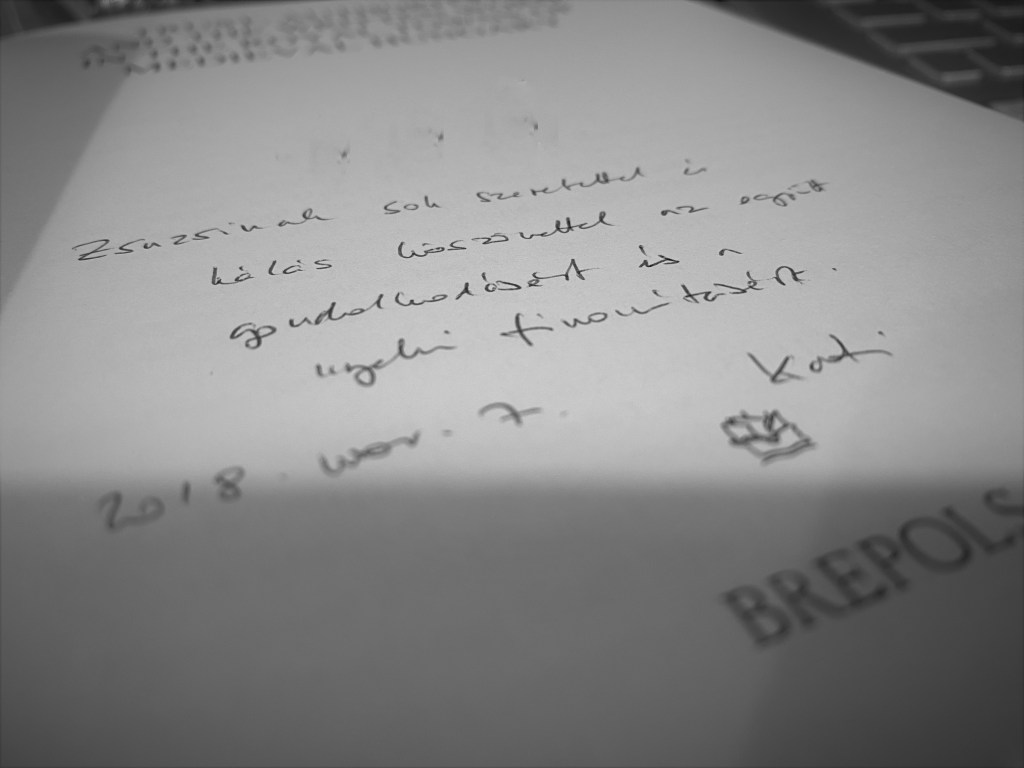 Zsuzsinak sok szeretettel és
hálás köszönettel az együtt
gondolkodásért és a
nyelvi finomításért.
Kati
2018. nov. 7.
BREPOLS